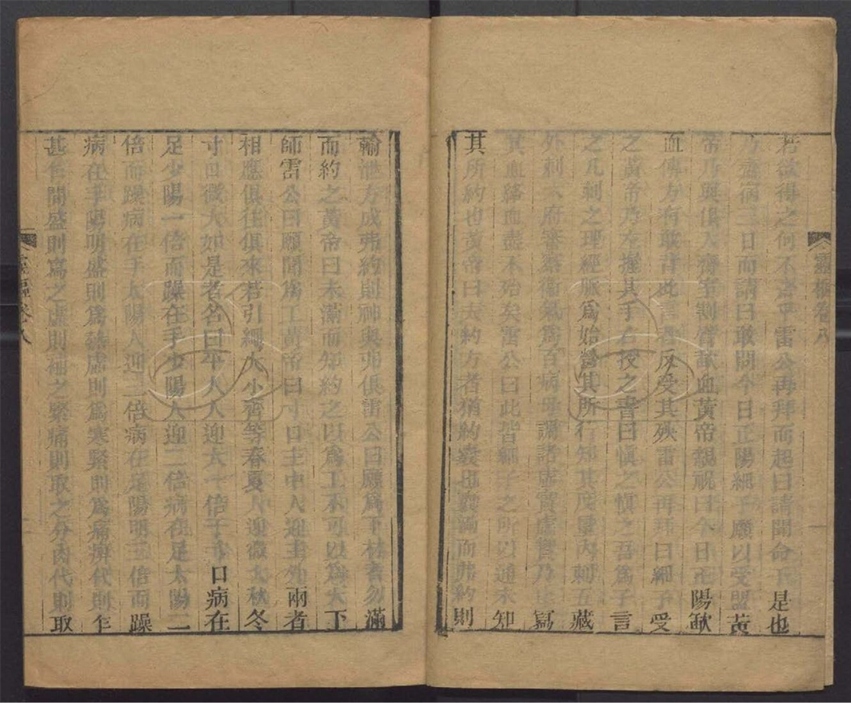 若欲得之何不齋乎雷公再拜而起曰請聞命于是也
乃齋宿三日而請曰敢問今日正陽細子願以受盟黃
帝乃與俱入齋室割臂歃血黃帝親祝曰今日正陽歃
血傳方有敢背此言者反受其殃雷公再拜曰細子受
之黃帝乃左握其手右授之書曰慎之慎之吾為子言
之凡刺之理經脈為始營其所行知其度量內刺五藏
外刺六府審察衛氣為百病母調諸虛實虛實乃止寫
其血絡血盡不殆矣雷公曰此皆細子之所以通未知
其所約也黃帝曰夫約方者猶約囊也囊滿而弗約則
靈樞卷八
輸泄方成弗約則神與弗俱雷公曰願為下材者勿滿
而約之黃帝曰未滿而知約之以為工不可以為天下
師雷公曰願聞為工黃帝曰寸口主中人迎主外兩者
相應俱往俱來若引繩大小齊等春夏人迎微大秋冬
寸口微大如是者名曰平人人迎大一倍于寸口病在
足少陽一倍而躁在手少陽人迎二倍病在足太陽二
倍而躁病在手太陽人迎三倍病在足陽明三倍而躁
病在手陽明盛則為熱虛則為寒緊則為痛痹代則乍
甚乍間盛則寫之虛則補之緊痛則取之分肉代則取